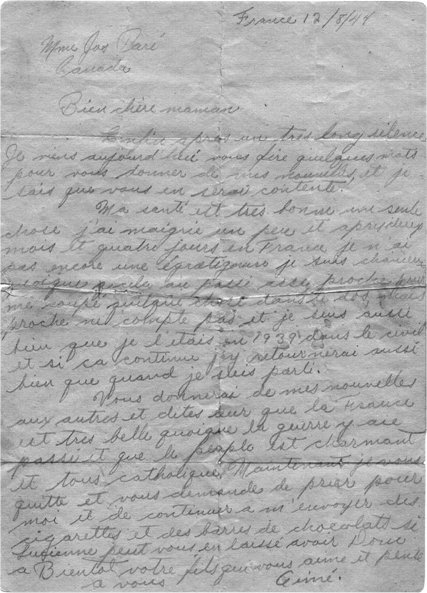 France 12/8/44
Mme Jos Paré
Canada
Bien chère maman
Enfin après un tres long silence
Je viens aujourd'hui vous dire quelques mots
pour vous donner de mes nouvelles et je
sais que vous en serai contente.
Ma santé est tres bonne une seule
chose j'ai maigrie un peu et apres deux
mois et quatre jours en France je n'ai
pas encore une égratignure je suis chanceux
quoique au passé assez proche pour
me coupé quelque dans le dos mais
proche ne compte pas et je suis aussi
bien que je l'étais en 1939 dans le civil
et si ca continue j'y retournerai aussi
bien que quand je suis parti.
Vous donnerai de mes nouvelles
aux autres et dites leur que la France
est tres belle quoique la guerre y aie
passé et que le peuple est charmant
et tous catholique. Maintenant je vous
quitte et vous demande de prier pour
moi et de continuer a m'envoyer des
cigarettes et des barres de chocolats si
Lucienne peut vous en laissé avoir Donc
a Bientot votre fils qui vous aime et pense
a vous Aimé.